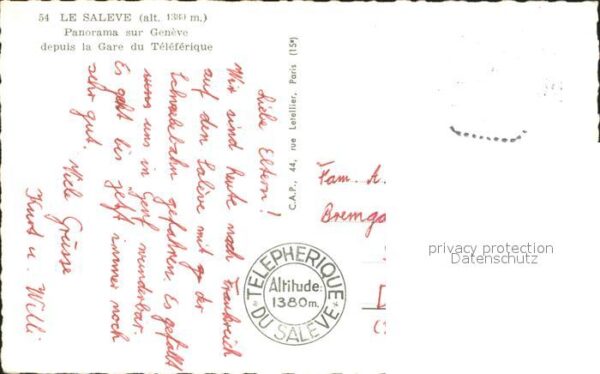 54 LE SALEVE (alt. 1380 m.)
Panorama sur Genève
depuis la Gare du Téléférique
Liebe Eltern!
Wir sind heute nach Frankreich
auf den Salève mit der
Schwebebahn gefahren. Es gefällt
uns in Genf wunderbar.
Es geht bis jetzt immer noch
sehr gut. Viele Grüsse
Kurt u. Willi
C.A.P., 44, rue Letellier, Paris (15e)
TELEPHERIQUE
Altitude:
1380m.
DU SALÈVE
Fam. A.
Bremga
privacy protection
Datenschutz